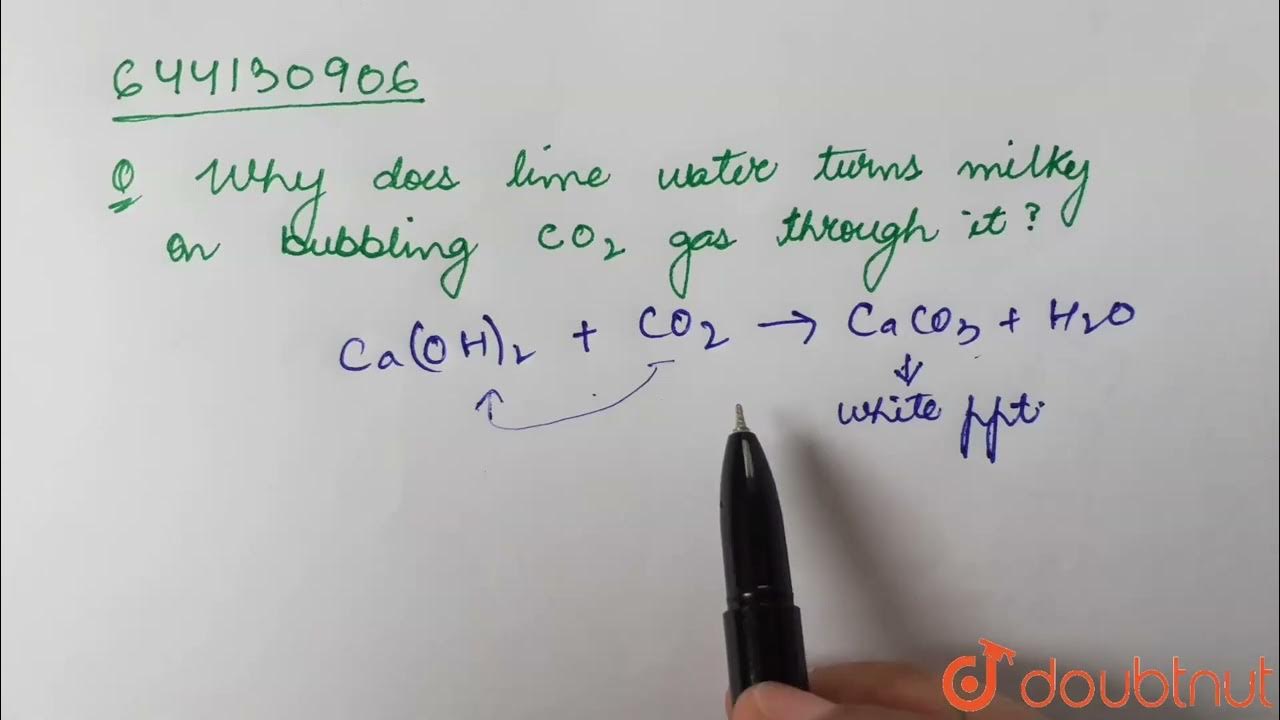 644130906
Q Why does lime water turns milky
on bubbling CO2 gas through it?
Ca(OH)2 + CO2 → CaCO3 + H2O
↓
white ppt.
doubtnut